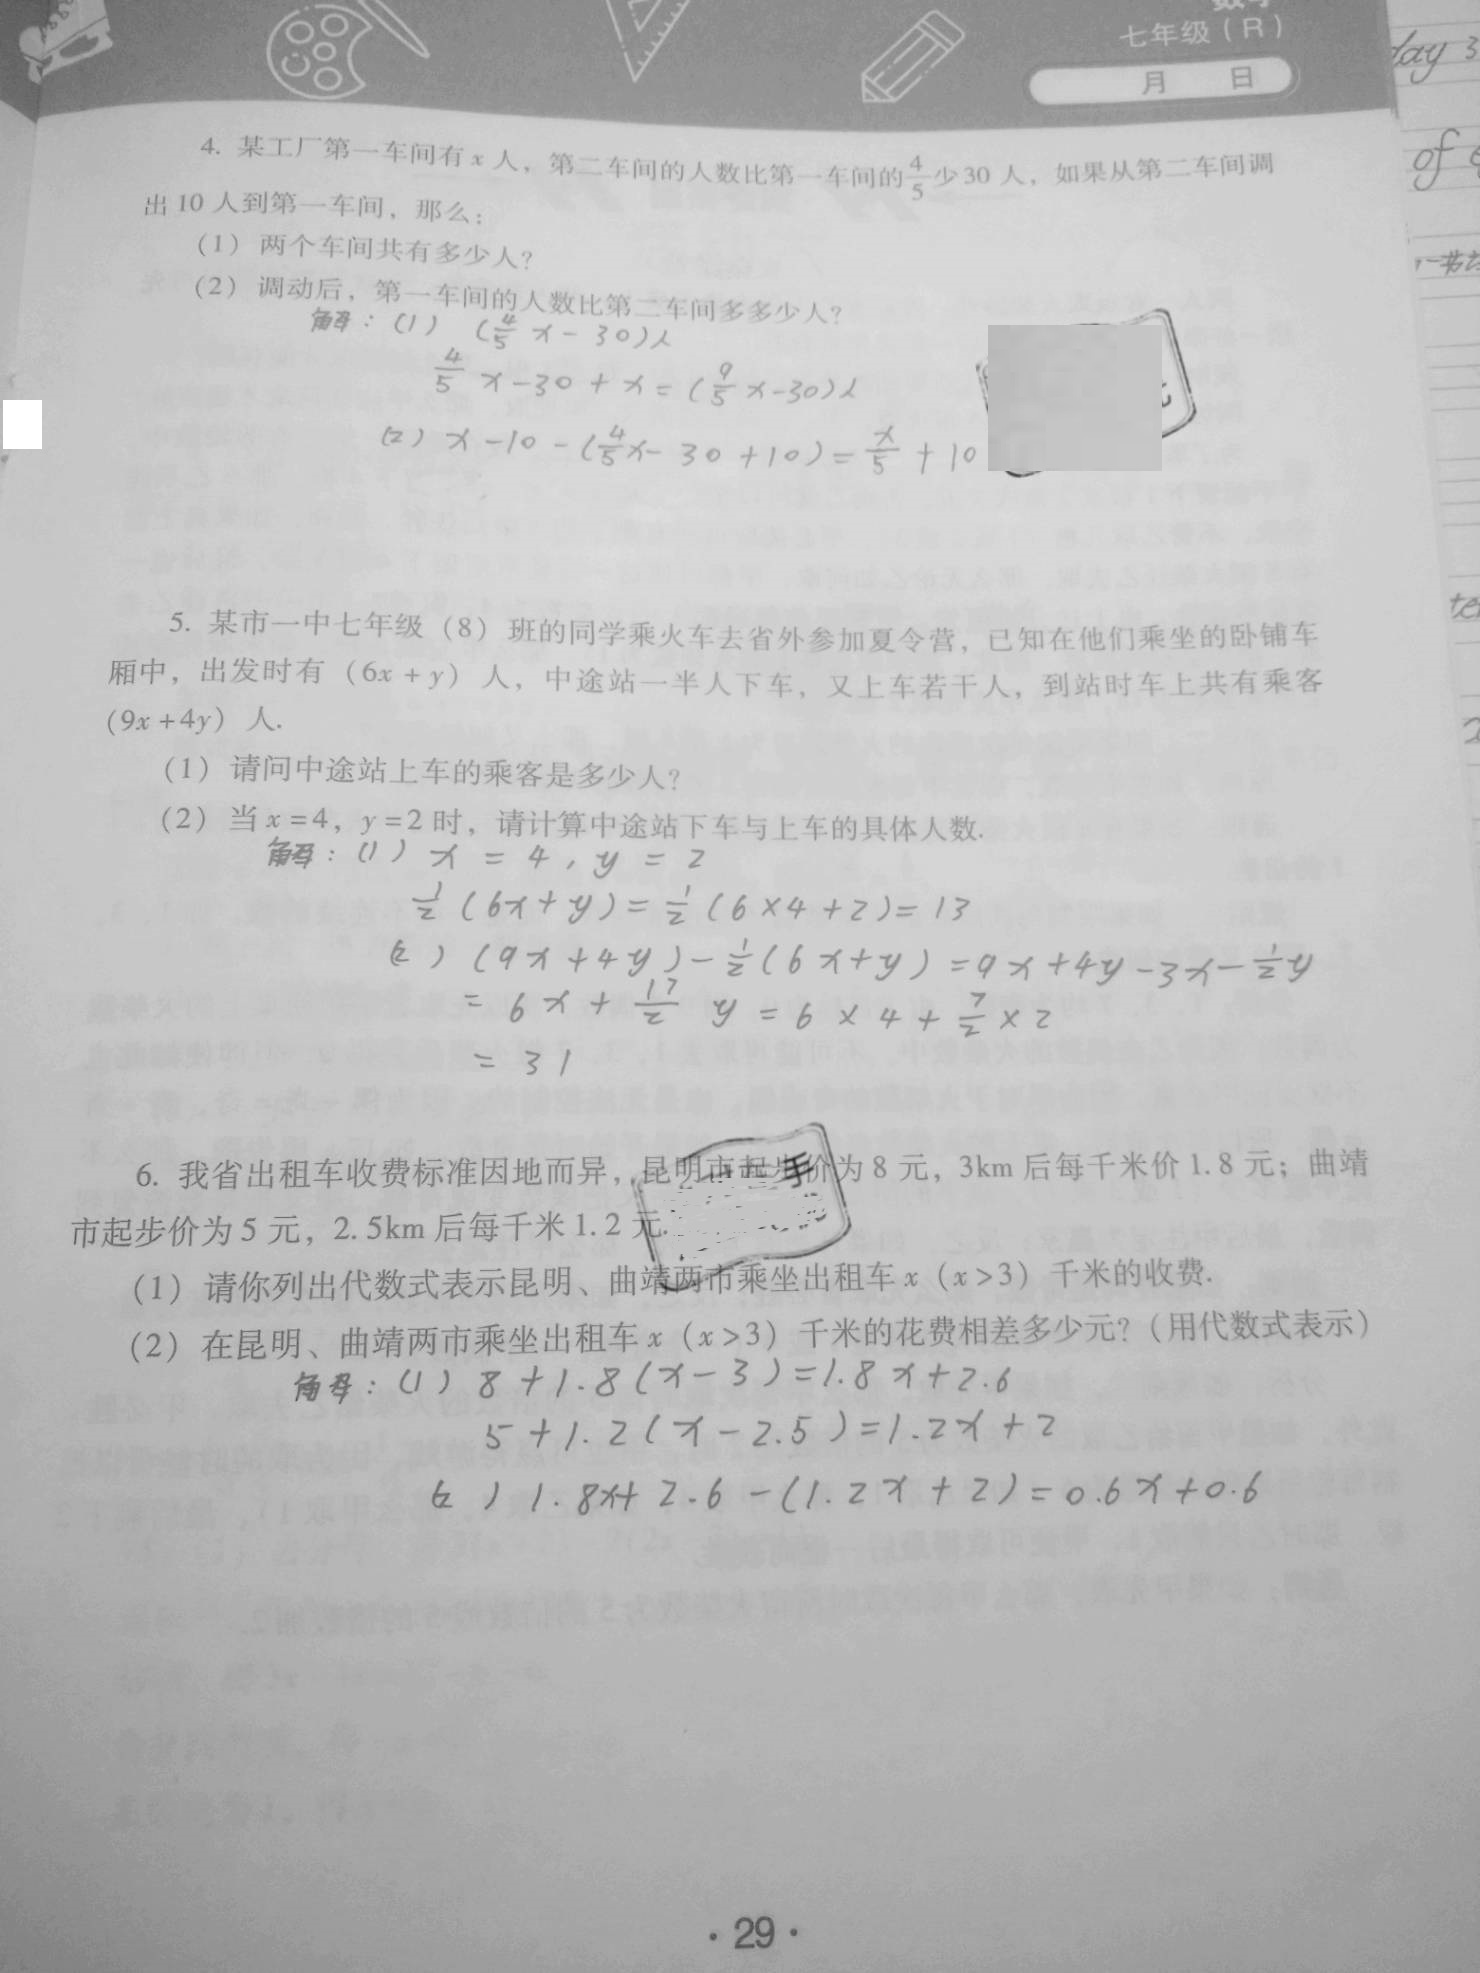 七年级（R）
月 日
4. 某工厂第一车间有 x 人，第二车间的人数比第一车间的4/5少30 人，如果从第二车间调
出 10 人到第一车间，那么：
（1）两个车间共有多少人？
（2）调动后，第一车间的人数比第二车间多多少人？
解：(1) (4/5 x - 30)人
4/5 x - 30 + x = (9/5 x - 30)人
(2) x - 10 - (4/5 x - 30 + 10) = x/5 + 10
5. 某市一中七年级（8）班的同学乘火车去省外参加夏令营，已知在他们乘坐的卧铺车
厢中，出发时有（6x + y）人，中途站一半人下车，又上车若干人，到站时车上共有乘客
（9x + 4y）人.
（1）请问中途站上车的乘客是多少人？
（2）当 x = 4，y = 2 时，请计算中途站下车与上车的具体人数.
解：(1) x = 4, y = 2
1/2 (6x + y) = 1/2 (6 × 4 + 2) = 13
(2) (9x + 4y) - 1/2 (6x + y) = 9x + 4y - 3x - 1/2 y
= 6x + 17/2 y = 6 × 4 + 7/2 × 2
= 31
6. 我省出租车收费标准因地而异，昆明市起步价为 8 元，3km 后每千米价 1.8 元；曲靖
市起步价为 5 元，2.5km 后每千米 1.2 元.
（1）请你列出代数式表示昆明、曲靖两市乘坐出租车 x（x > 3）千米的收费.
（2）在昆明、曲靖两市乘坐出租车 x（x > 3）千米的花费相差多少元？（用代数式表示）
解：(1) 8 + 1.8(x - 3) = 1.8x + 2.6
5 + 1.2(x - 2.5) = 1.2x + 2
(2) 1.8x + 2.6 - (1.2x + 2) = 0.6x + 0.6
· 29 ·
day 3
of